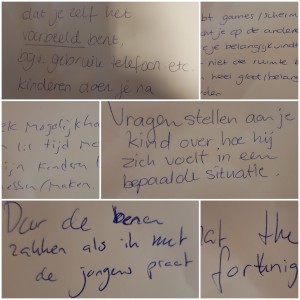 dat je zelf het
voorbeeld bent,
bijv. gebruik telefoon etc
kinderen doen je na
games/scherm
dat je op de andere
je belangrijk vindt
niet de ruimte
heel groot/belang
ek mogelijkh
tijd me
ijn kinderen
essen/maken.
Vragen stellen aan je
kind over hoe hij
zich voelt in een
bepaalde situatie.
Door de benen
zakken als ik met
de jongens praat
at the
fortnig